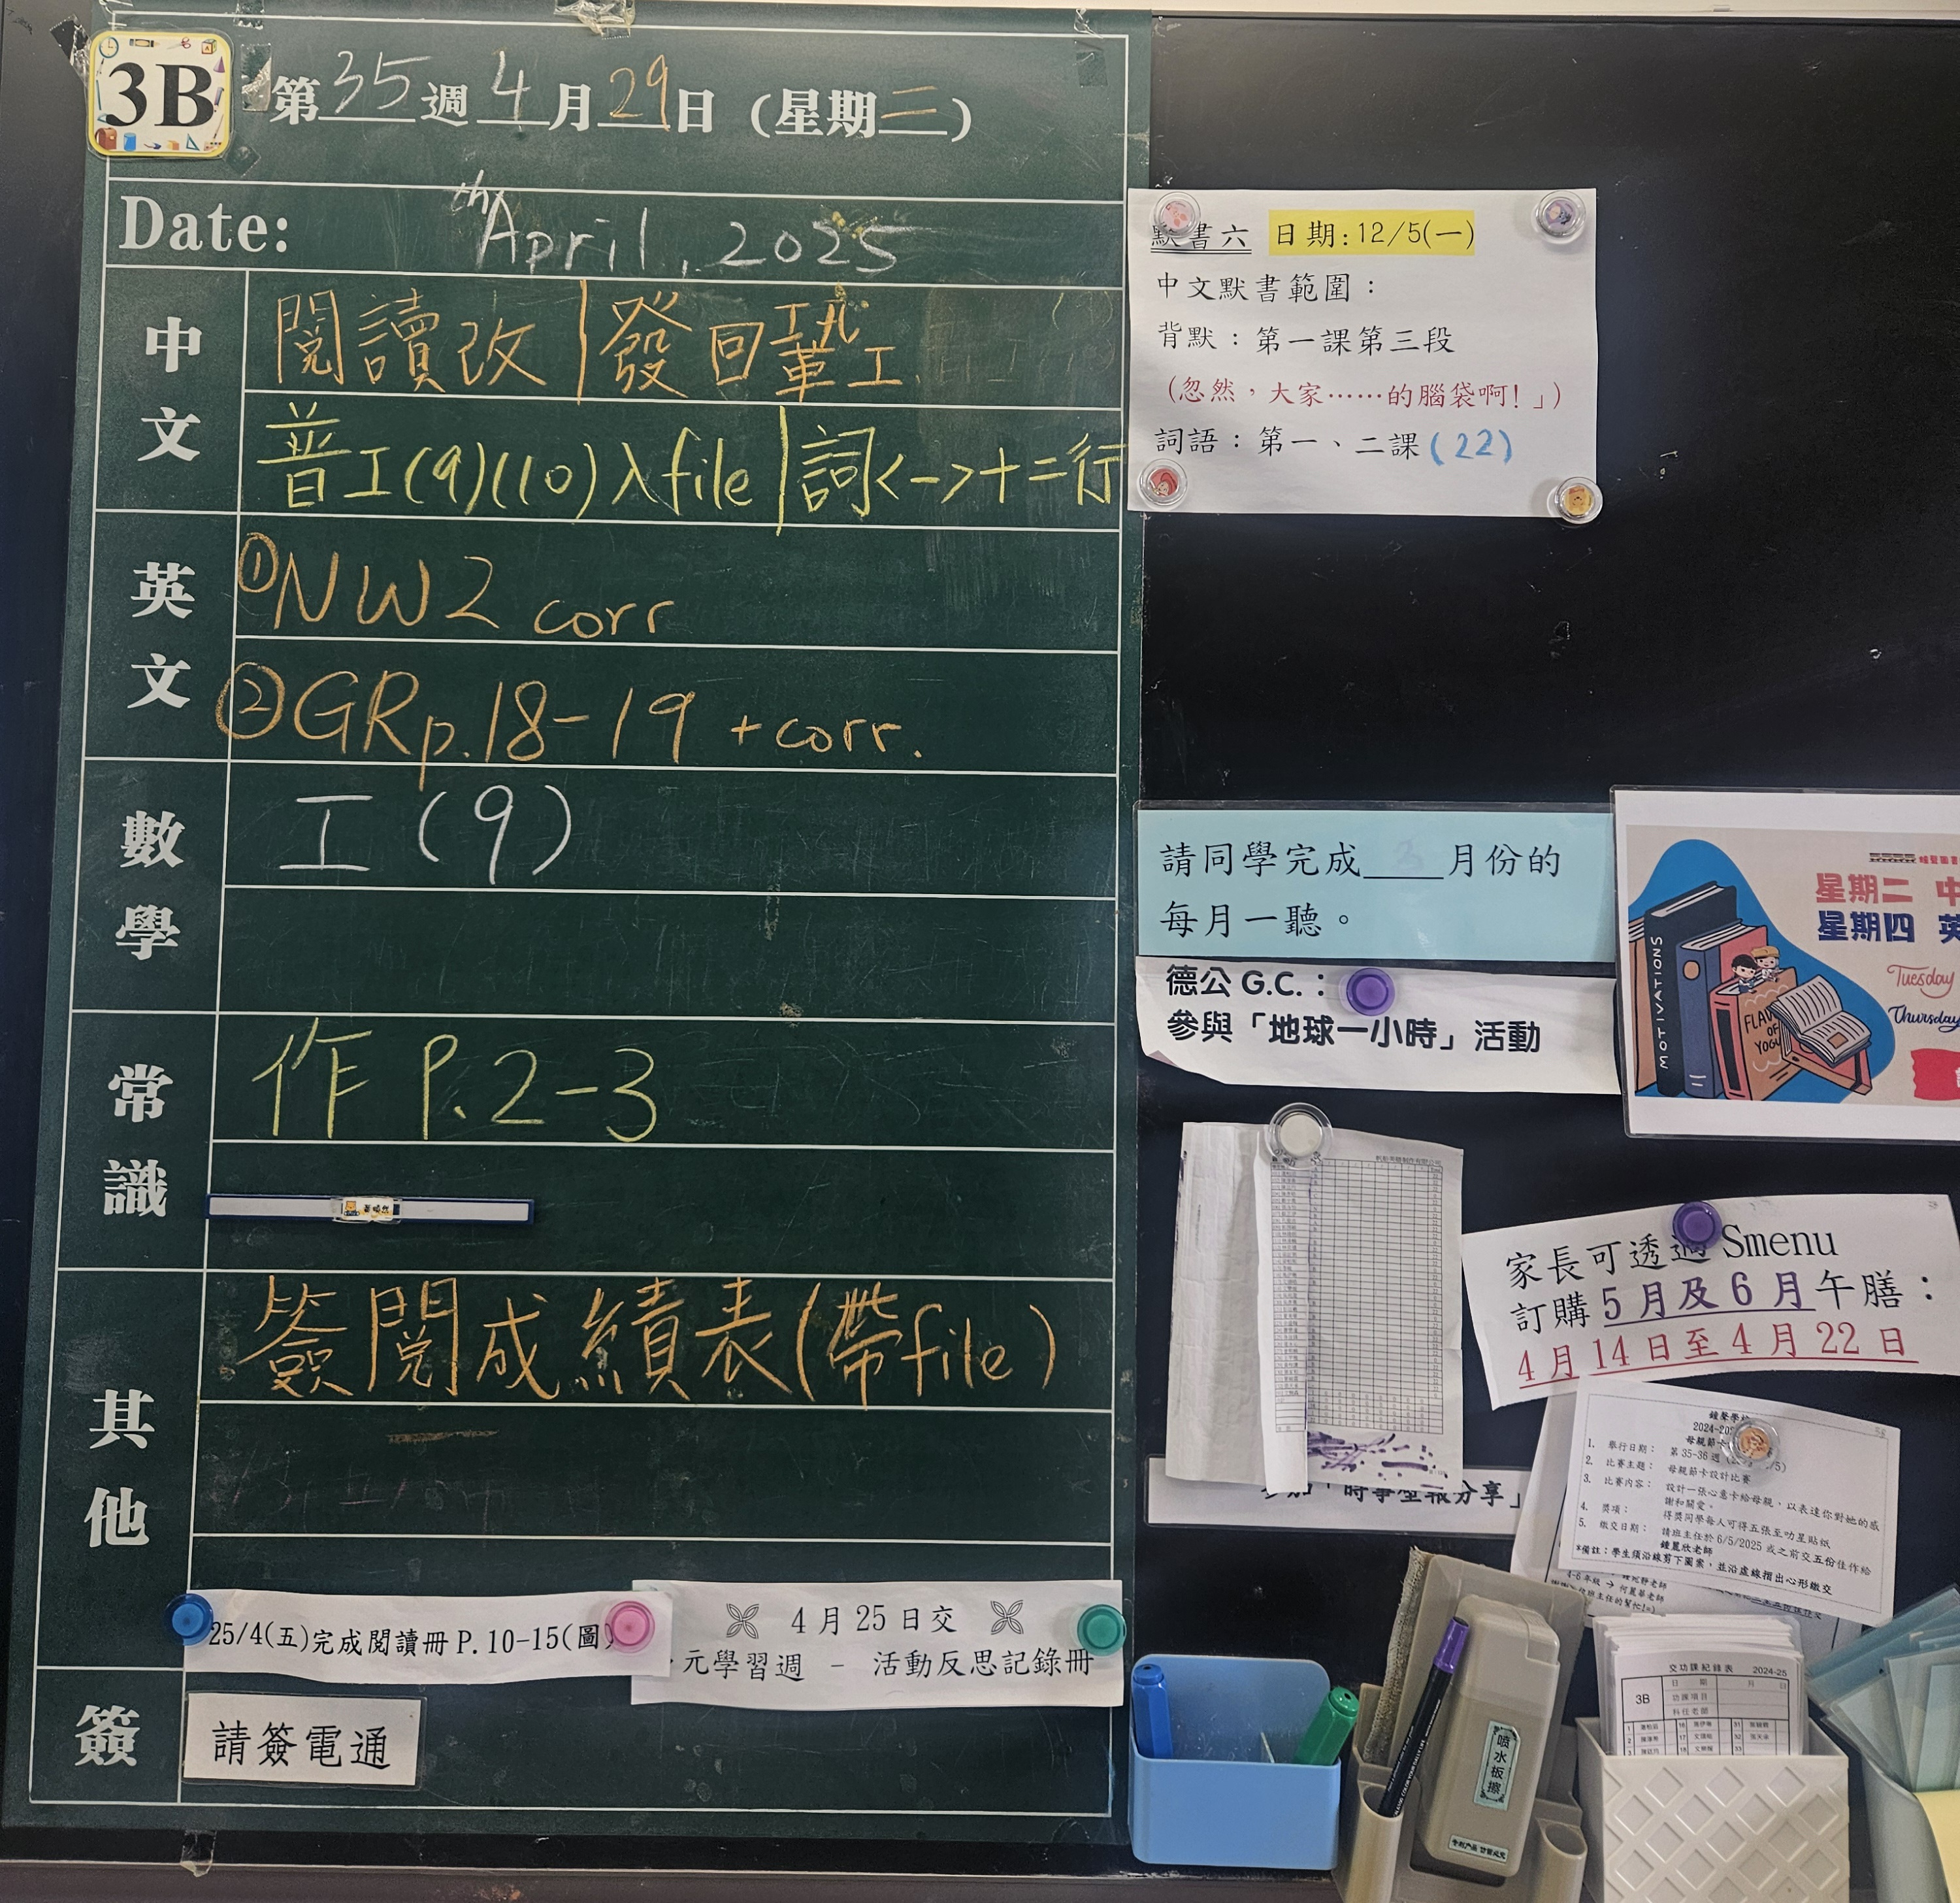 3B
第35週4月29日（星期二）
Date: th April, 2025
中文
閱讀改|發回鞏工
普工(9)(10)入file|詞<一>十二行
英文
①NW2 corr
②GR p.18-19 +corr.
數學
工(9)
常識
作 P.2-3
其他
簽閱成績表(帶file)
25/4(五)完成閱讀冊 P.10-15(圖)
4月25日交
元學習週 - 活動反思記錄冊
簽
請簽電通
默書六 日期:12/5(一)
中文默書範圍：
背默：第一課第三段
（忽然，大家……的腦袋啊！」）
詞語：第一、二課(22)
請同學完成3月份的
每月一聽。
德公 G.C.：
參與「地球一小時」活動
星期二 中
星期四 英
Tuesday
Thursday
MOTIVATIONS
OF
家長可透過 Smenu
訂購5月及6月午膳：
4月14日至4月22日
分享」
2024-20
1. 舉行日期： 第35-36週
2. 比賽主題： 母親節卡設計比賽
3. 比賽內容： 設計一張心意卡給母親，以表達你對她的感
謝和關愛。
4. 獎項： 得獎同學每人可得五張至叻星貼紙
5. 繳交日期： 請班主任於6/5/2025 或之前交五份佳作給
鍾麗欣老師
*備註：學生須沿線剪下圖案，並沿虛線摺出心形繳交
4-6年級 → 何麗華老師
交功課紀錄表 2024-25
3B
日期 月 日
功課項目
科任老師
噴水板擦